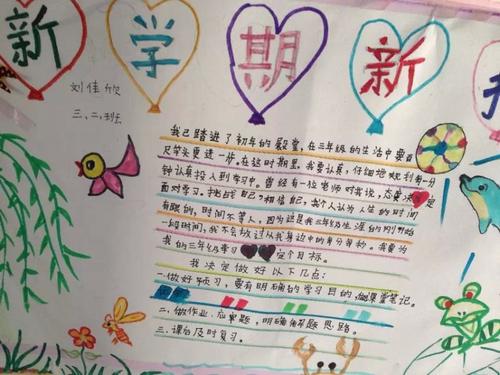 新学期新
刘佳欣
三、二班
我已踏进了初年的殿堂,在三年级的生活中要百
尺竿头更进一步。在这时期里,我要认真,仔细地规利每一分
钟认真投入到学习中。曾经有一位老师对我说,态度决定
面对学习。挑战自己,相信自己,每个人认为人生的时间
有限的,时间不等人,因为这是我三年级生涯的刚开始
一段时间,我不会放过从我身边中的每分每秒。我要为
我的三年级学习定个目标。
我决定做好以下几点:
一.做好预习,要有明确的学习目的,做课堂笔记。
二、做作业、应审题,明确解题思路。
三.课后及时复习。